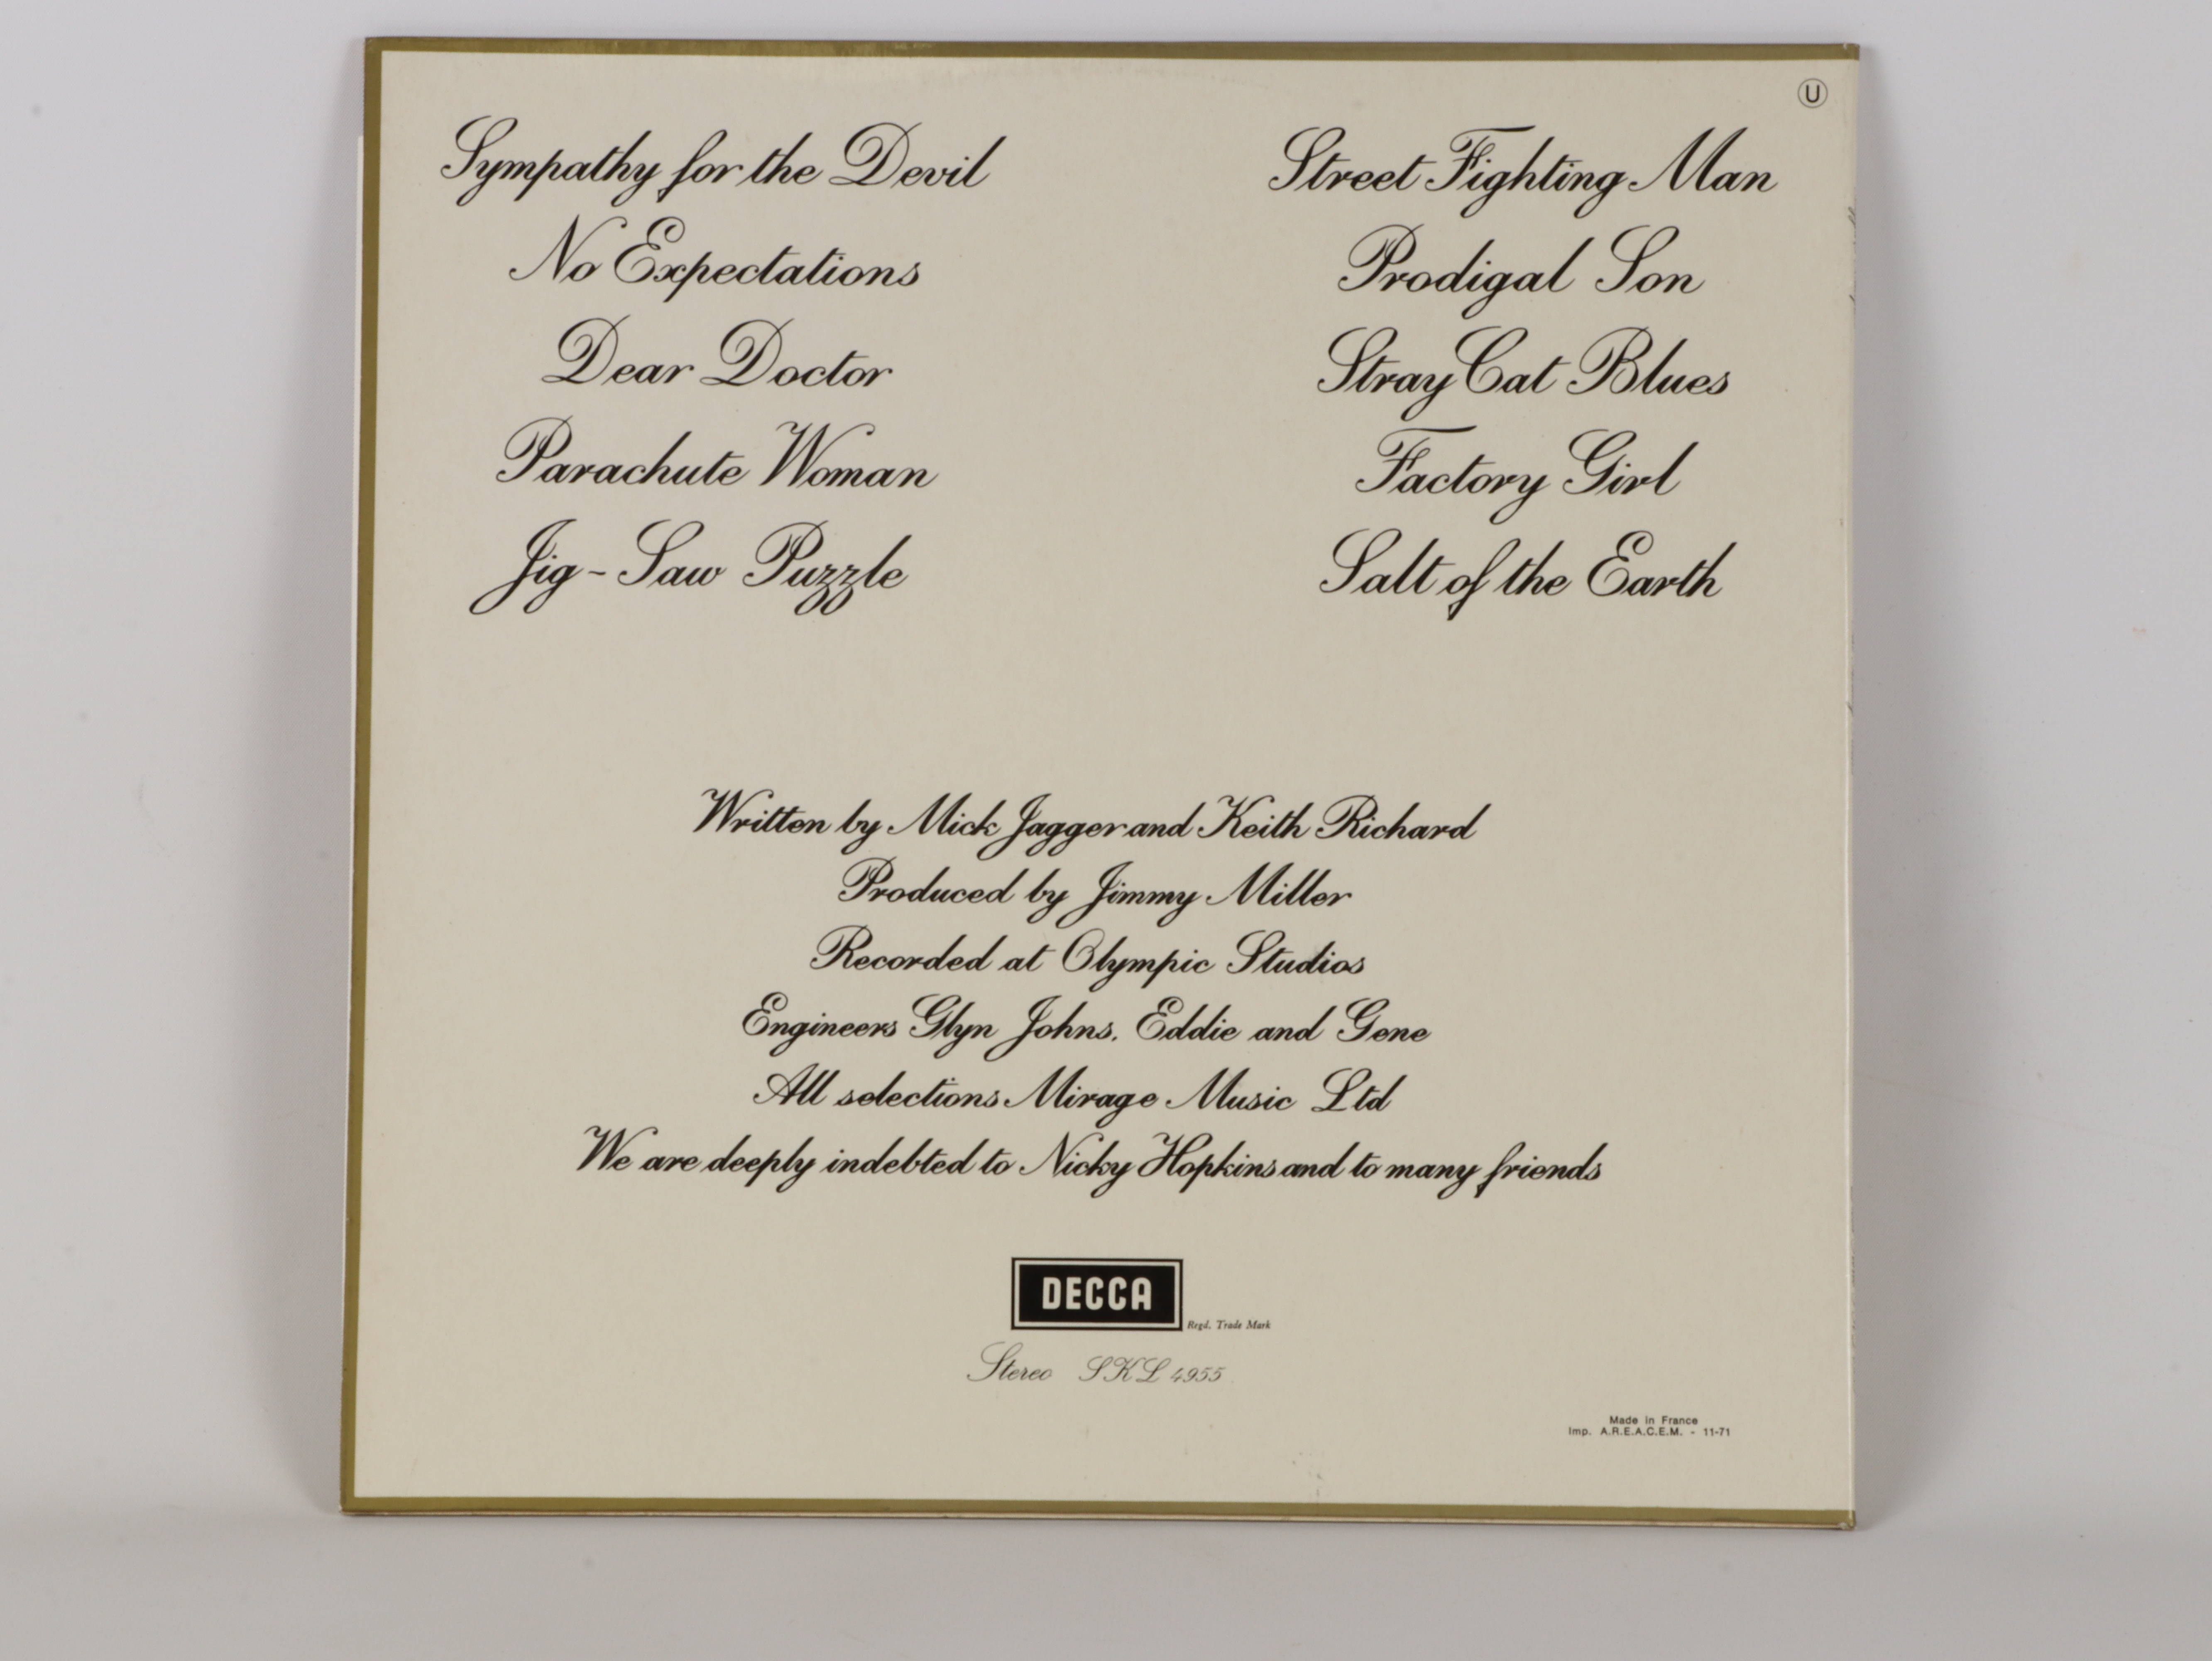 U
Sympathy for the Devil
No Expectations
Dear Doctor
Parachute Woman
Jig-Saw Puzzle
Street Fighting Man
Prodigal Son
Stray Cat Blues
Factory Girl
Salt of the Earth
Written by Mick Jagger and Keith Richard
Produced by Jimmy Miller
Recorded at Olympic Studios
Engineers Glyn Johns. Eddie and Gene
All selections Mirage Music Ltd
We are deeply indebted to Nicky Hopkins and to many friends
DECCA
Regd. Trade Mark
Stereo SKL 4955
Made in France
Imp. A.R.E.A.C.E.M. - 11-71